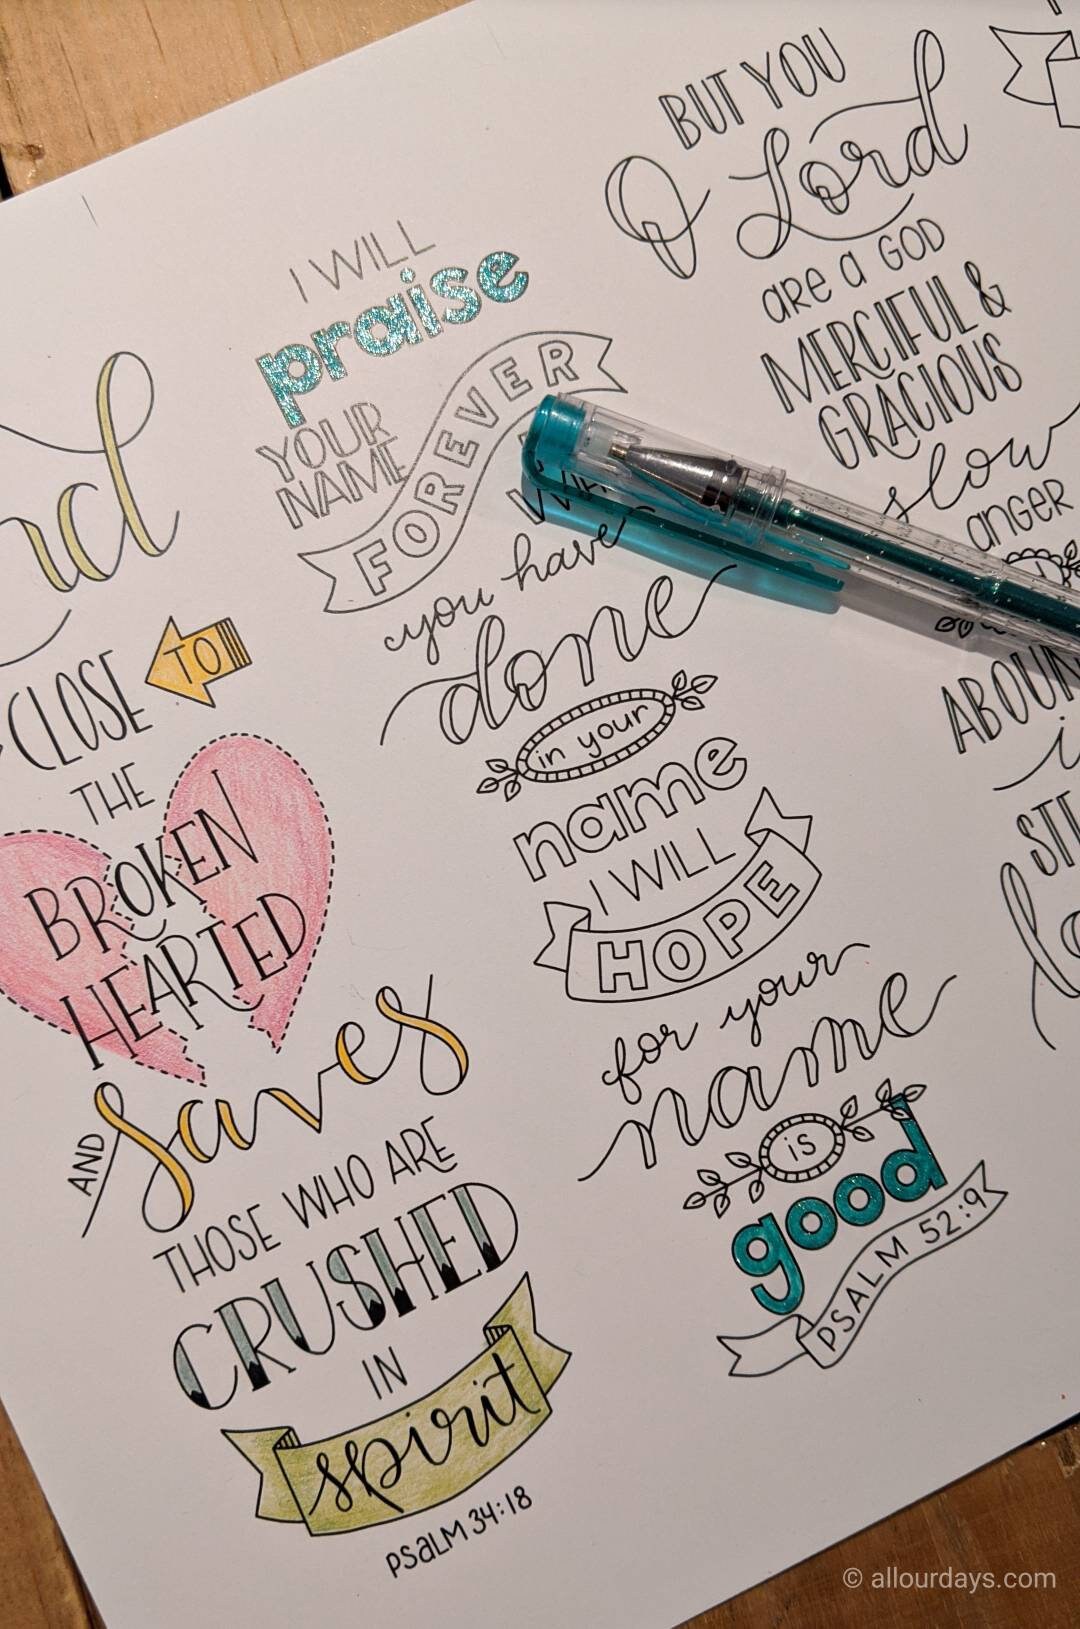 rd
CLOSE TO
THE
BROKEN
HEARTED
AND saves
THOSE WHO ARE
CRUSHED
IN
spirit
PSALM 34:18
I WILL
praise
YOUR
NAME
FOREVER
you have
done
in your
name
I WILL
HOPE
for your
name
is
good
PSALM 52:9
BUT YOU
O Lord
are a GOD
MERCIFUL &
GRACIOUS
slow
anger
© allourdays.com